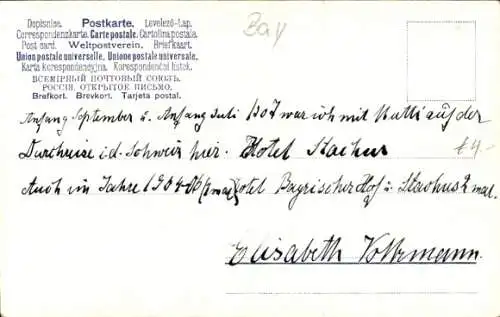 Bay
Dopisnice. Postkarte. Levelező-Lap.
Correspondenzkarte. Carte postale. Cartolina postale.
Post card. Weltpostverein. Briefkaart.
Union postale universelle. Unione postale universale.
Karta korespondencyjna. Korespondenční lístek.
ВСЕМІРНЫЙ ПОЧТОВЫЙ СОЮЗЪ.
РОССІЯ. ОТКРЫТОЕ ПИСЬМО.
Brefkort. Brevkort. Tarjeta postal.
Anfang September u. Anfang Juli 1907 war ich mit Mutti auf der
Durchreise i. d. Schweiz hier. Hotel Stachus
£4.-
Auch im Jahre 1904 Hotel Bayrischer Hof u. Stachus 2 mal.
Elisabeth Volkmann.